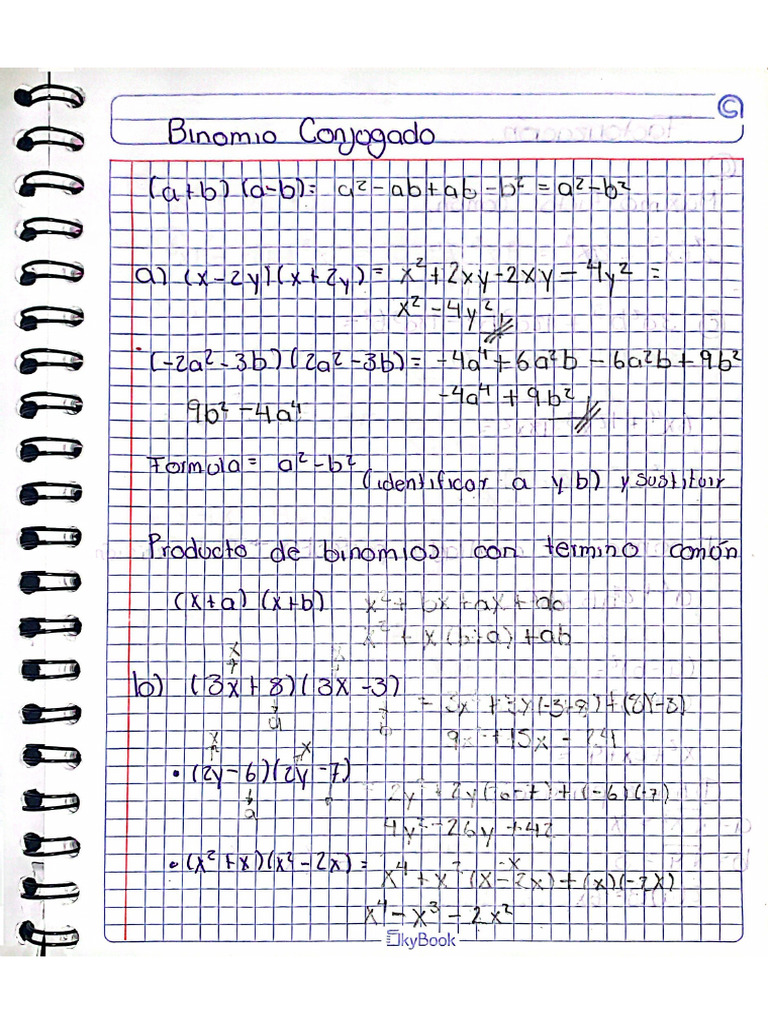 5
Binomio Conjogado
(a+b) (a-b)= a²-ab+ab-b² = a²-b²
a) (x-2y)(x+2y) = x²+2xy-2xy-4y² =
x²-4y²
·(-2a²-3b)(2a²-3b)= -4a⁴+6a²b-6a²b+9b²
9b²-4a⁴ -4a⁴+9b²
Formula= a²-b² (identificar a y b) y sustituir
Producto de binomios con termino común
(x+a) (x+b) x²+bx+ax+ab
x²+x(b+a)+ab
x x
b) (3x+8)(3x-3) = 3x²+3x(-3+8)+(8)(-3)
a b 9x²+15x-24
x x
•(2y-6)(2y-7)
a 2y²+2y(-6-7)+(-6)(-7)
4y²-26y+42
-x
•(x²+x)(x²-2x)= x⁴+x²(x-2x)+(x)(-2x)
x⁴-x³-2x²
SkyBook